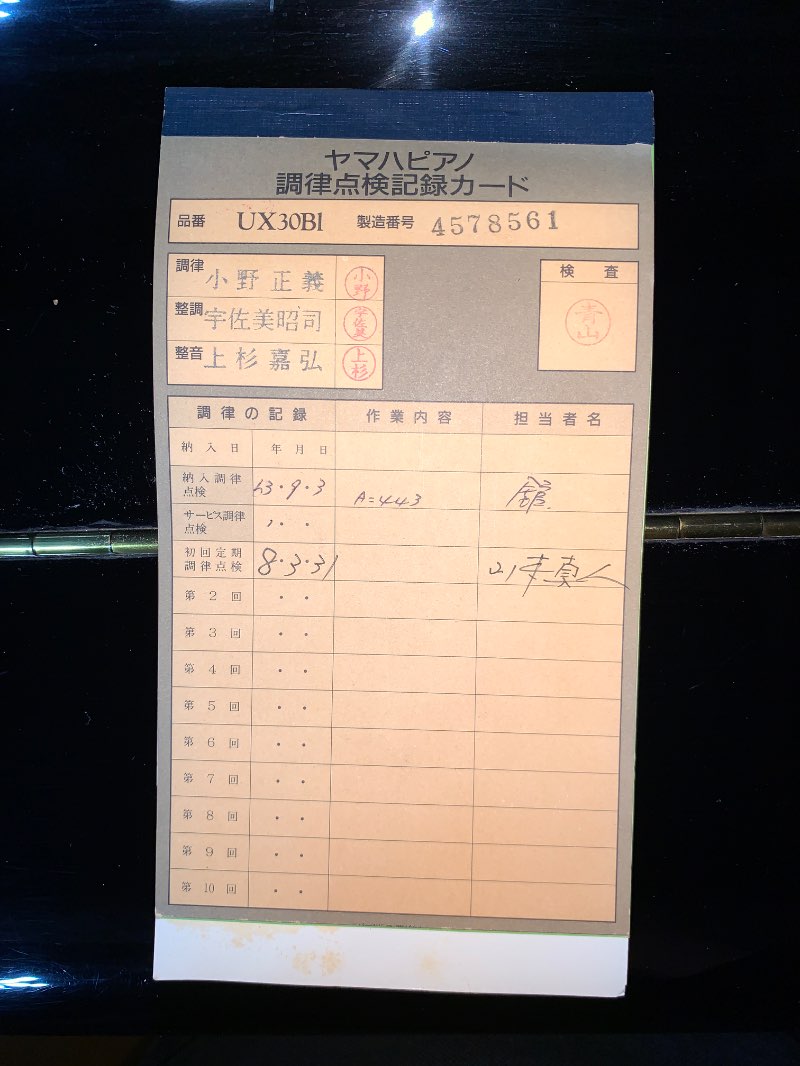 ヤマハピアノ
調律点検記録カード
品番 UX30Bl 製造番号 4578561
調律 小野正義 小野
整調 宇佐美昭司 宇佐美
整音 上杉嘉弘 上杉
検査
青山
調律の記録 作業内容 担当者名
納入日 年月日
納入調律点検 63・9・3 A=443 舘
サービス調律点検 ・・
初回定期調律点検 8・3・31
第2回 ・・
第3回 ・・
第4回 ・・
第5回 ・・
第6回 ・・
第7回 ・・
第8回 ・・
第9回 ・・
第10回 ・・